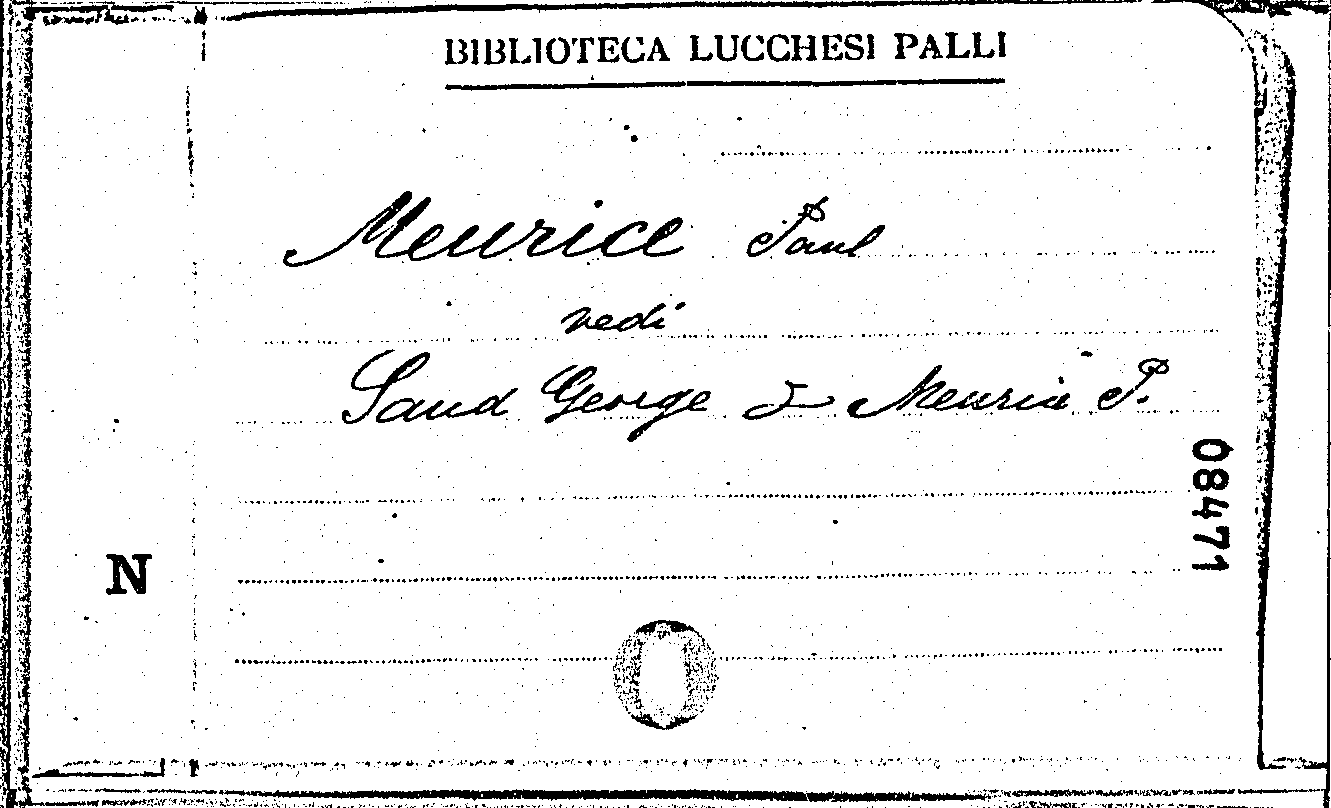 BIBLIOTECA LUCCHESI PALLI
Meurice Paul
vedi
Sand George & Meurice P.
08471
N